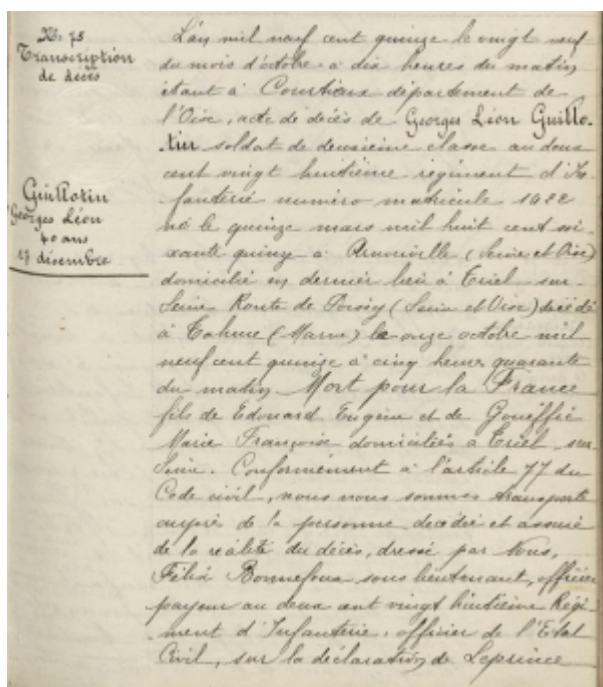 No 75
Transcription
de décès
Guillotin
Georges Léon
40 ans
17 décembre
L'an mil neuf cent quinze le vingt neuf
du mois d'octobre à dix heures du matin
étant à Courtieux département de
l'Oise, acte de décès de Georges Léon Guillo-
tin soldat de deuxième classe au deux
cent vingt huitième régiment d'In-
fanterie numéro matricule 1922
né le quinze mars mil huit cent soi-
xante quinze à Arnouville (Seine et Oise)
domicilié en dernier lieu à Triel sur-
Seine Route de Poissy (Seine et Oise) décédé
à Tahure (Marne) le onze octobre mil
neuf cent quinze à cinq heures quarante
du matin Mort pour la France
fils de Edouard Eugène et de Gouëffic
Marie Françoise domiciliés à Triel sur-
Seine. Conformément à l'article 77 du
Code civil, nous nous sommes transporté
auprès de la personne décédée et assuré
de la réalité du décès, dressé par Nous,
Félix Bonnefoux sous lieutenant, officier
payeur au deux cent vingt huitième Régi-
ment d'Infanterie, officier de l'Etat
Civil, sur la déclaration de Leprince